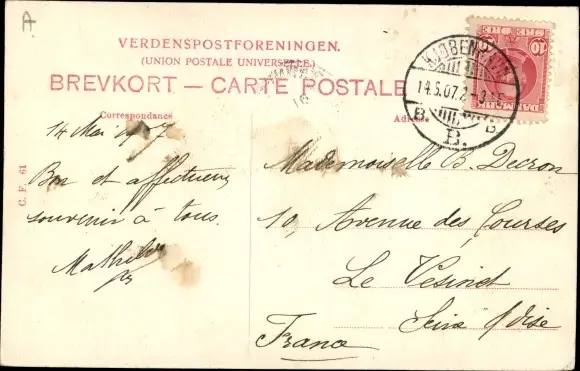 A
VERDENSPOSTFORENINGEN.
(UNION POSTALE UNIVERSELLE.)
BREVKORT — CARTE POSTALE
Correspondance
Adresse
KJØBENHAVN
14.5.07.2
B B
B.
10
DANMARK
C. F. 61
14 Mai 1907
Bon et affectueux
souvenir à tous.
Mathilde
Mademoiselle B. Decron
10, Avenue des Courses
Le Vesinet
Seine & Oise
France